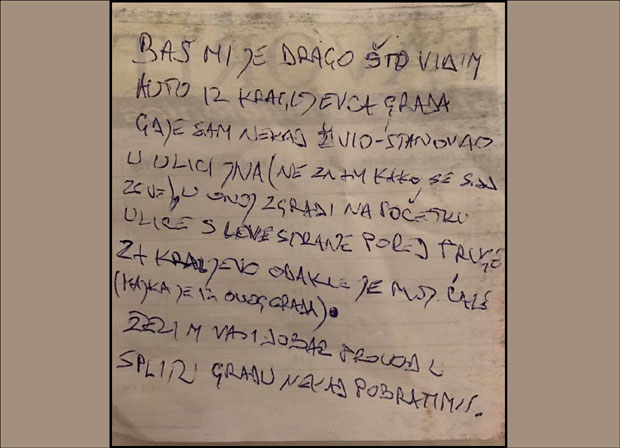 BAŠ MI JE DRAGO ŠTO VIDIM
AUTO IZ KRAGUJEVCA GRADA
GDJE SAM NEKAD ŽIVIO-STANOVAO
U ULICI JNA (NE ZNAM KAKO SE SAD
ZOVE), U ONOJ ZGRADI NA POČETKU
ULICE S LEVE STRANE PORED PRUGE
ZA KRALJEVO ODAKLE JE MOJ ĆALE
(MAJKA JE IZ OVOG GRADA).
ŽELIM VAM DOBAR PROVOD U
SPLITU GRADU NEKAD POBRATIMU.